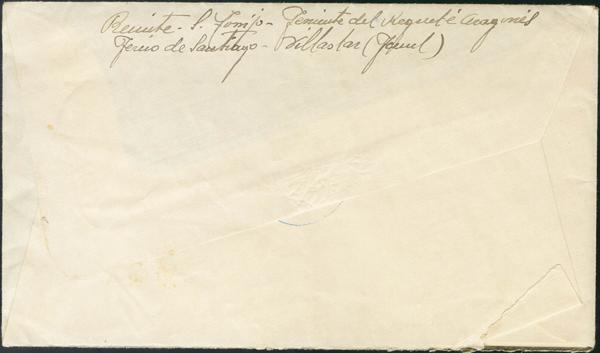 Remite - S. Tomijo - Teniente del Requeté Aragonés
Tercio de Santiago - Villastar (Teruel)